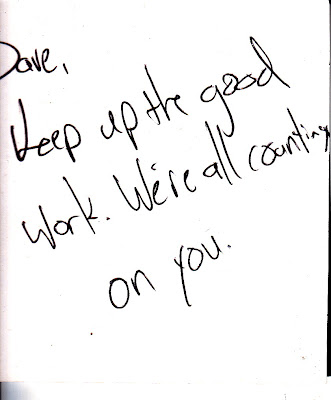 Dave,
Keep up the good
work. We're all counting
on you.